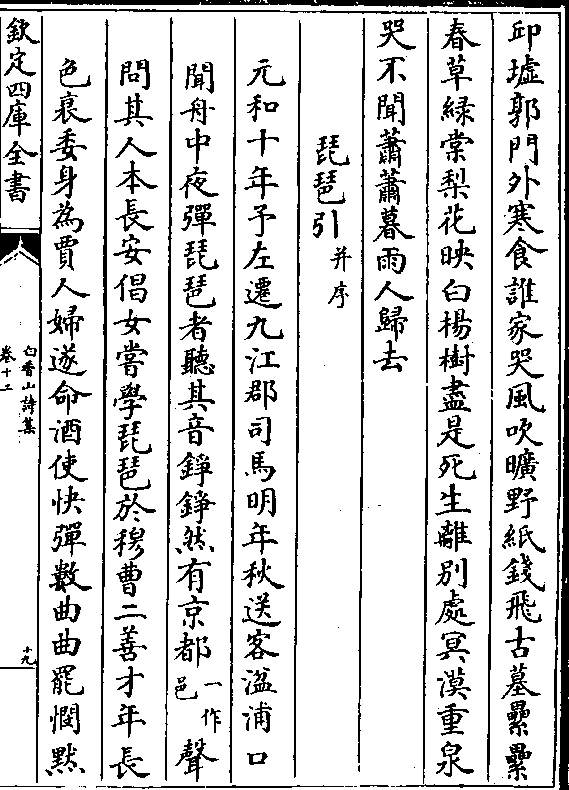 邱墟郭門外寒食誰家哭風吹曠野紙錢飛古墓纍纍
春草緑棠梨花映白楊樹盡是死生離别處冥漠重泉
哭不聞蕭蕭暮雨人歸去
琵琶引并序
元和十年予左遷九江郡司馬明年秋送客湓浦口
聞舟中夜彈琵琶者聽其音錚錚然有京都一作邑聲
問其人本長安倡女嘗學琵琶於穆曹二善才年長
色衰委身為賈人婦遂命酒使快彈數曲曲罷憫黙
欽定四庫全書
白香山詩集
卷十二
十九